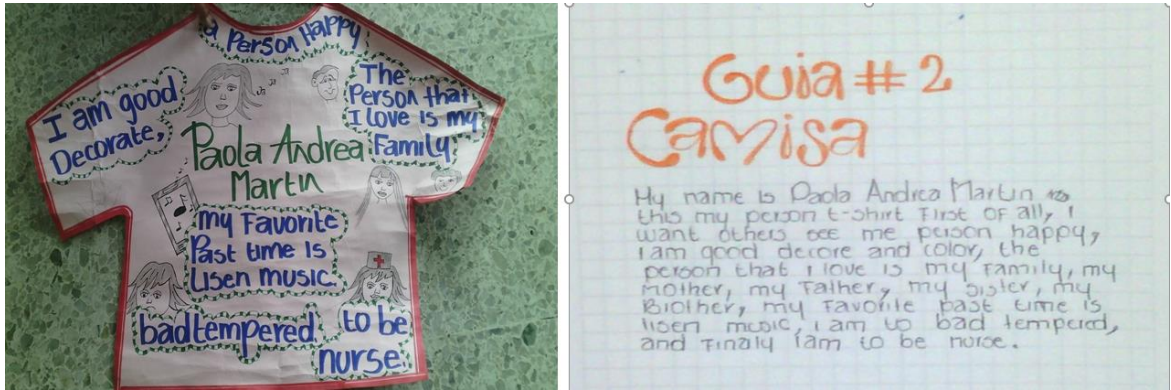 a Person Happy
I am good
Decorate,
The
Person that
I love is my
Family
Paola Andrea
Martin
my Favorite
Past time Is
Lisen music.
bad tempered
to be
nurse.
Guia # 2
Camisa
My name is Paola Andrea Martin
this my person t-shirt First of all, I
want others see me person happy,
I am good decore and color, the
person that i love is my Family, my
Mother, my Father, my sister, my
Brother, my Favorite past time is
lisen music, i am to bad tempered,
and Finaly iam to be nurse.